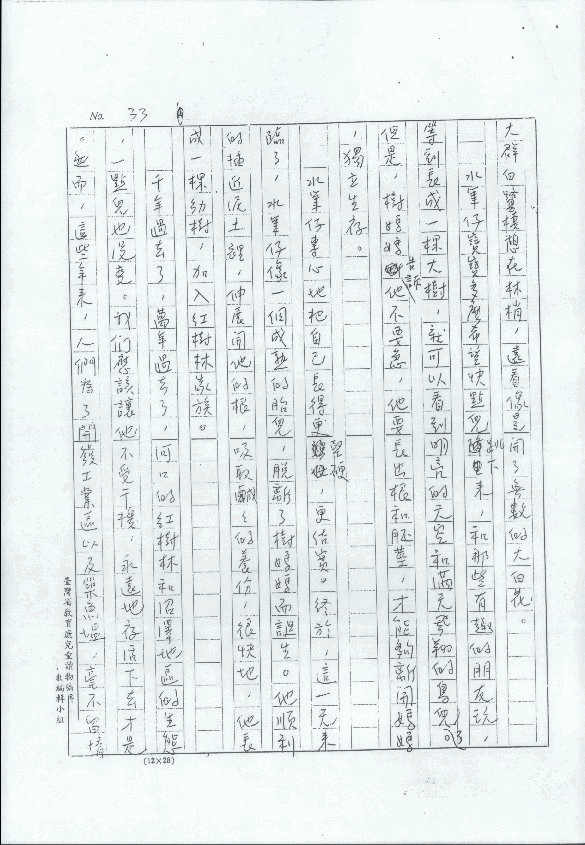 No. 33
大群白鷺棲想在林梢，遠看像是開了無數的大白花。
水筆仔寶寶多麼希望快點兒跳下來，和那些有趣的朋友玩，
等到長成一棵大樹，就可以看到明亮的天空和滿天飛翔的鳥兒了。
但是，樹媽媽告訴他不要急，他要長出根和胚莖，才能夠離開媽媽
，獨立生存。
水筆仔專心地把自己長得更堅硬，更結實。終於，這一天來
臨了，水筆仔像一個成熟的胎兒，脫離了樹媽媽而誕生。他順利
的插近泥土裡，伸展開他的根，吸取鹹鹹的養份，很快地，他長
成一棵幼樹，加入紅樹林家族。
千年過去了，萬年過去了，河口的紅樹林和沼澤地區的生態
，一點兒也沒變。我們應該讓他不受干擾，永遠地存活下去才是
。然而，這些年來，人們為了開發工業區以及築魚塭，毫不留情
臺灣省教育廳兒童讀物編輯小組
(12×28)